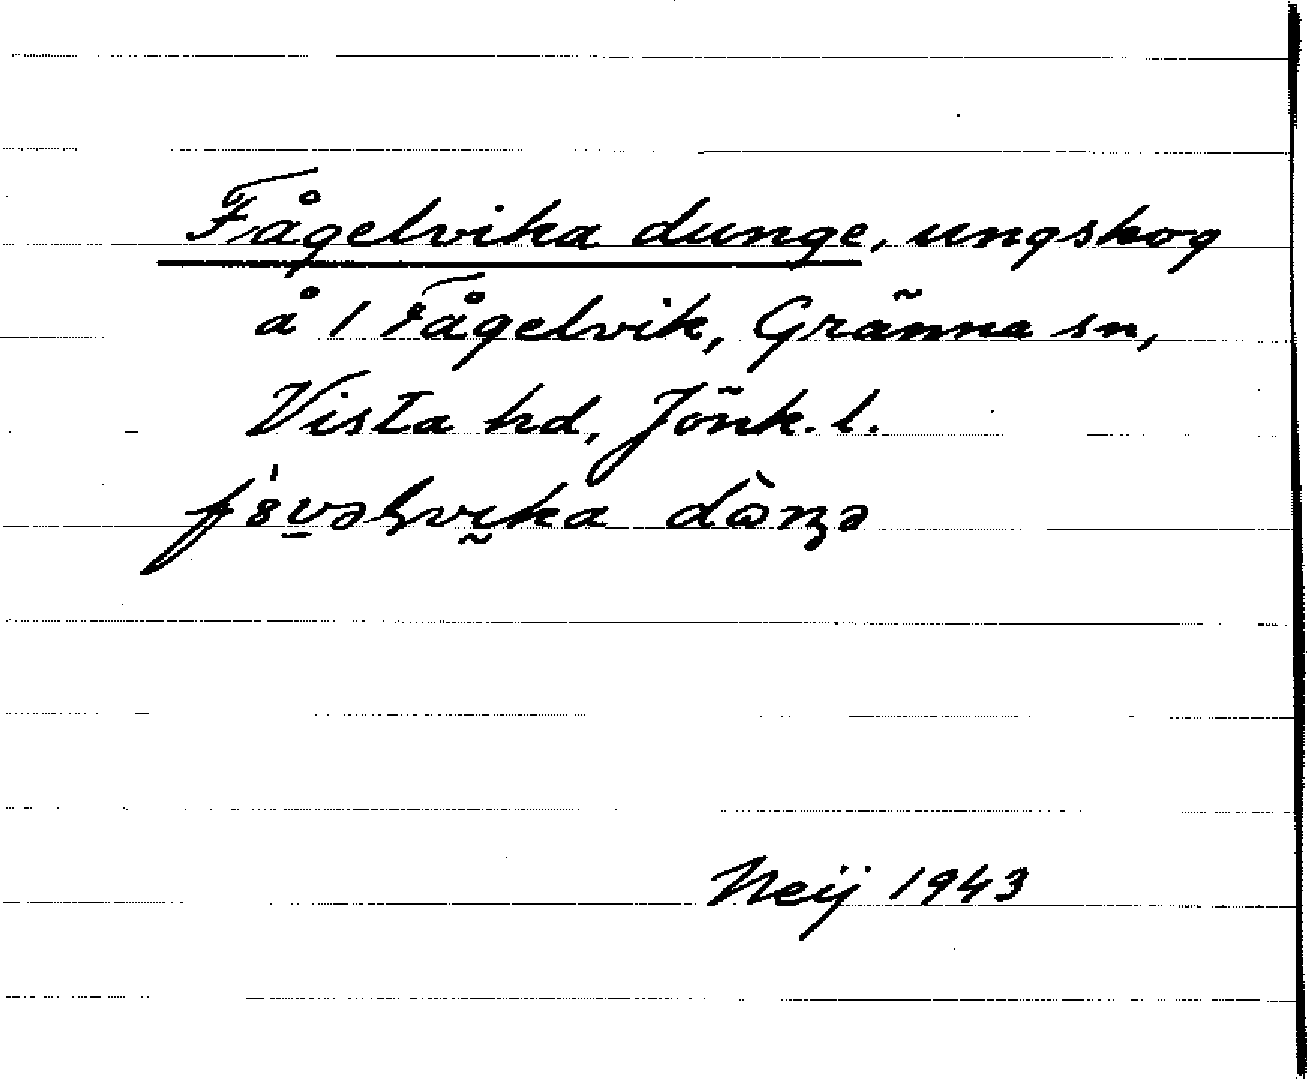 Fågelvika dunge, ungskog
å 1 Fågelvik, Gränna sn,
Vista hd, Jönk. l.
Neij 1943